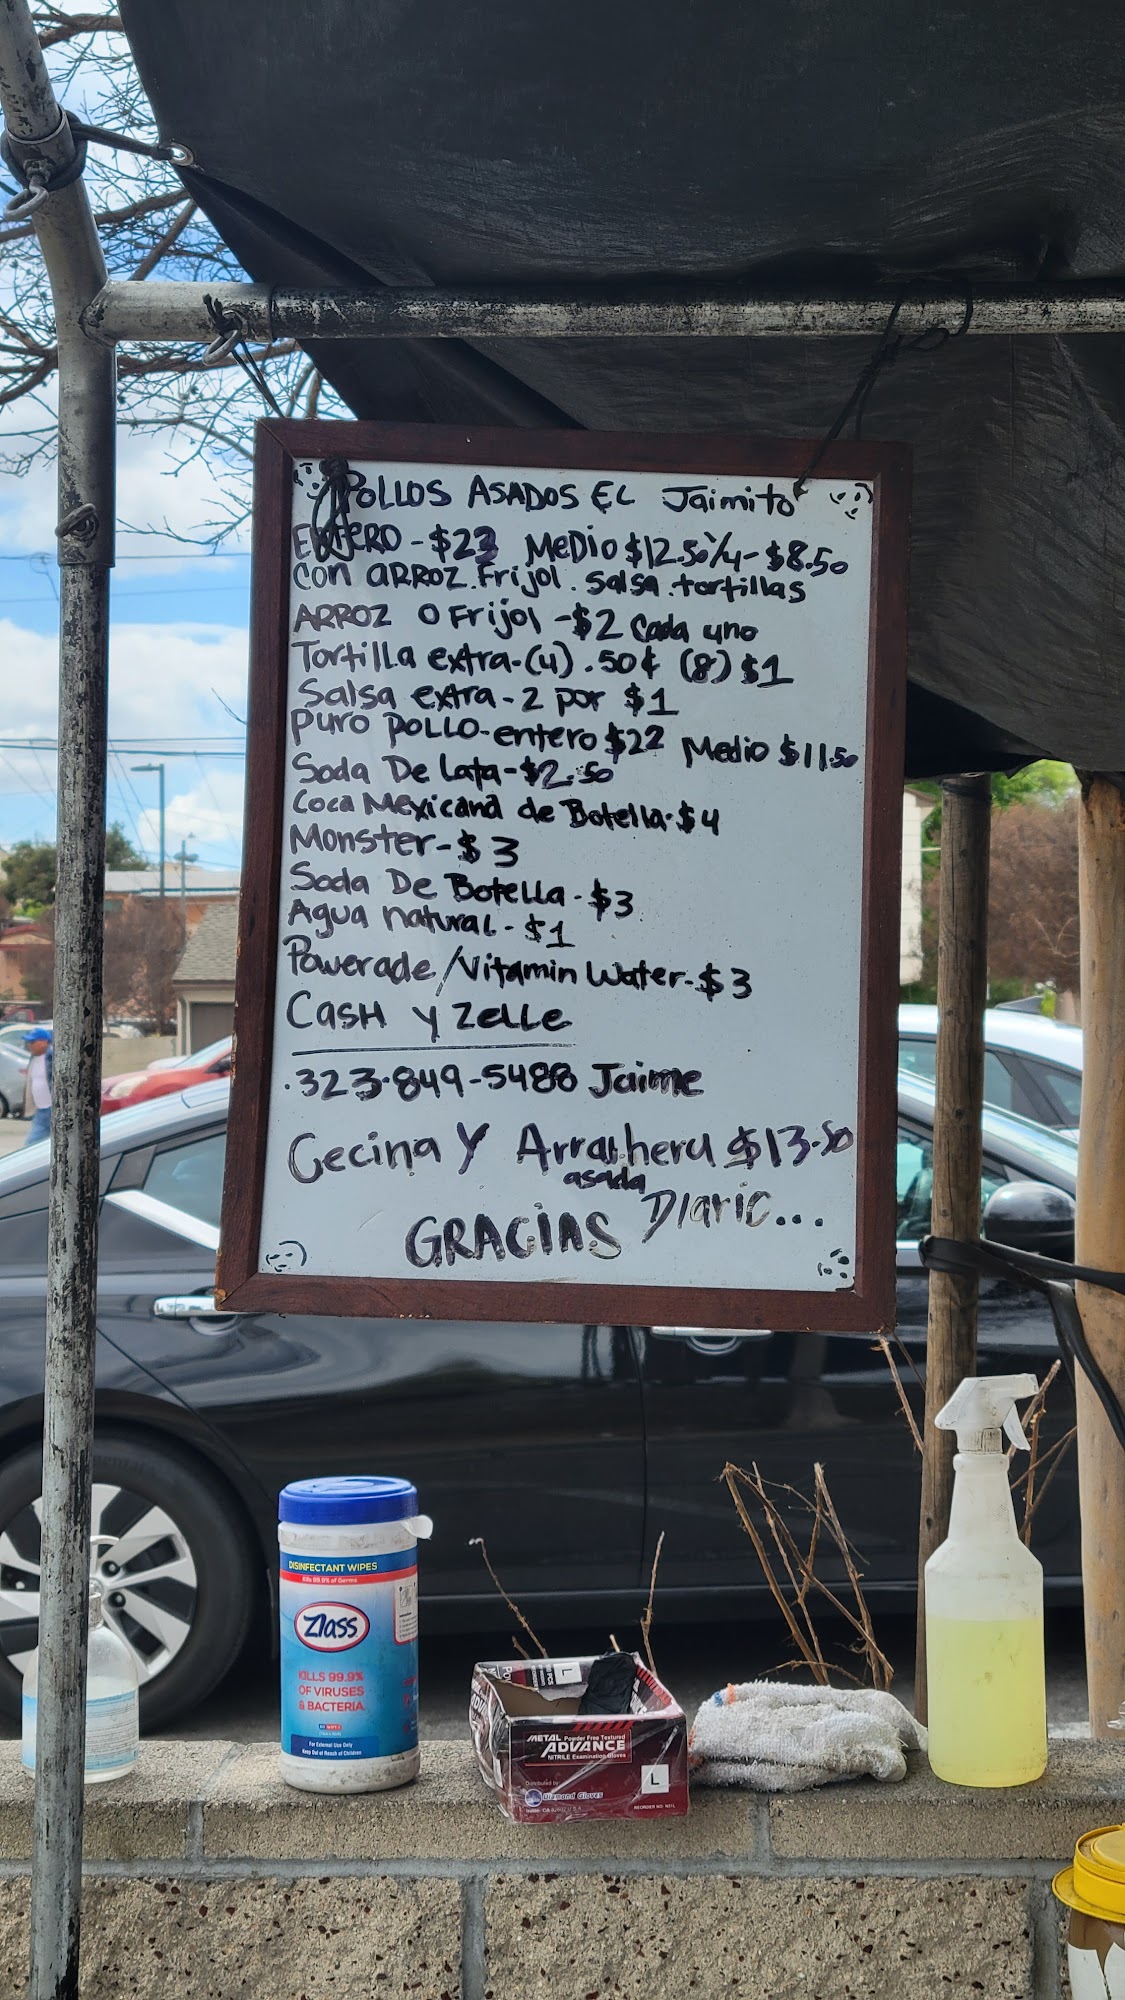 POLLOS ASADOS EL Jaimito
ENTERO - $23 MEDIO $12.50 1/4 - $8.50
CON ARROZ. Frijol. Salsa. tortillas
ARROZ O Frijol - $2 cada uno
Tortilla extra - (4) .50¢ (8) $1
Salsa extra - 2 por $1
PURO POLLO - entero $22 Medio $11.50
Soda De Lata - $2.50
Coca Mexicana de Botella - $4
Monster - $3
Soda De Botella - $3
Agua natural - $1
Powerade / Vitamin Water - $3
CASH y Zelle
.323-849-5488 Jaime
Cecina y Arrachera $13.50
asada
GRACIAS Diario...
DISINFECTANT WIPES
Kills 99.9% of Germs
Zlass
KILLS 99.9%
OF VIRUSES
& BACTERIA
For External Use Only
Keep Out of Reach of Children
L
METAL Powder Free Textured
ADVANCE
NITRILE Examination Gloves
L
Distributed by
Diamond Gloves